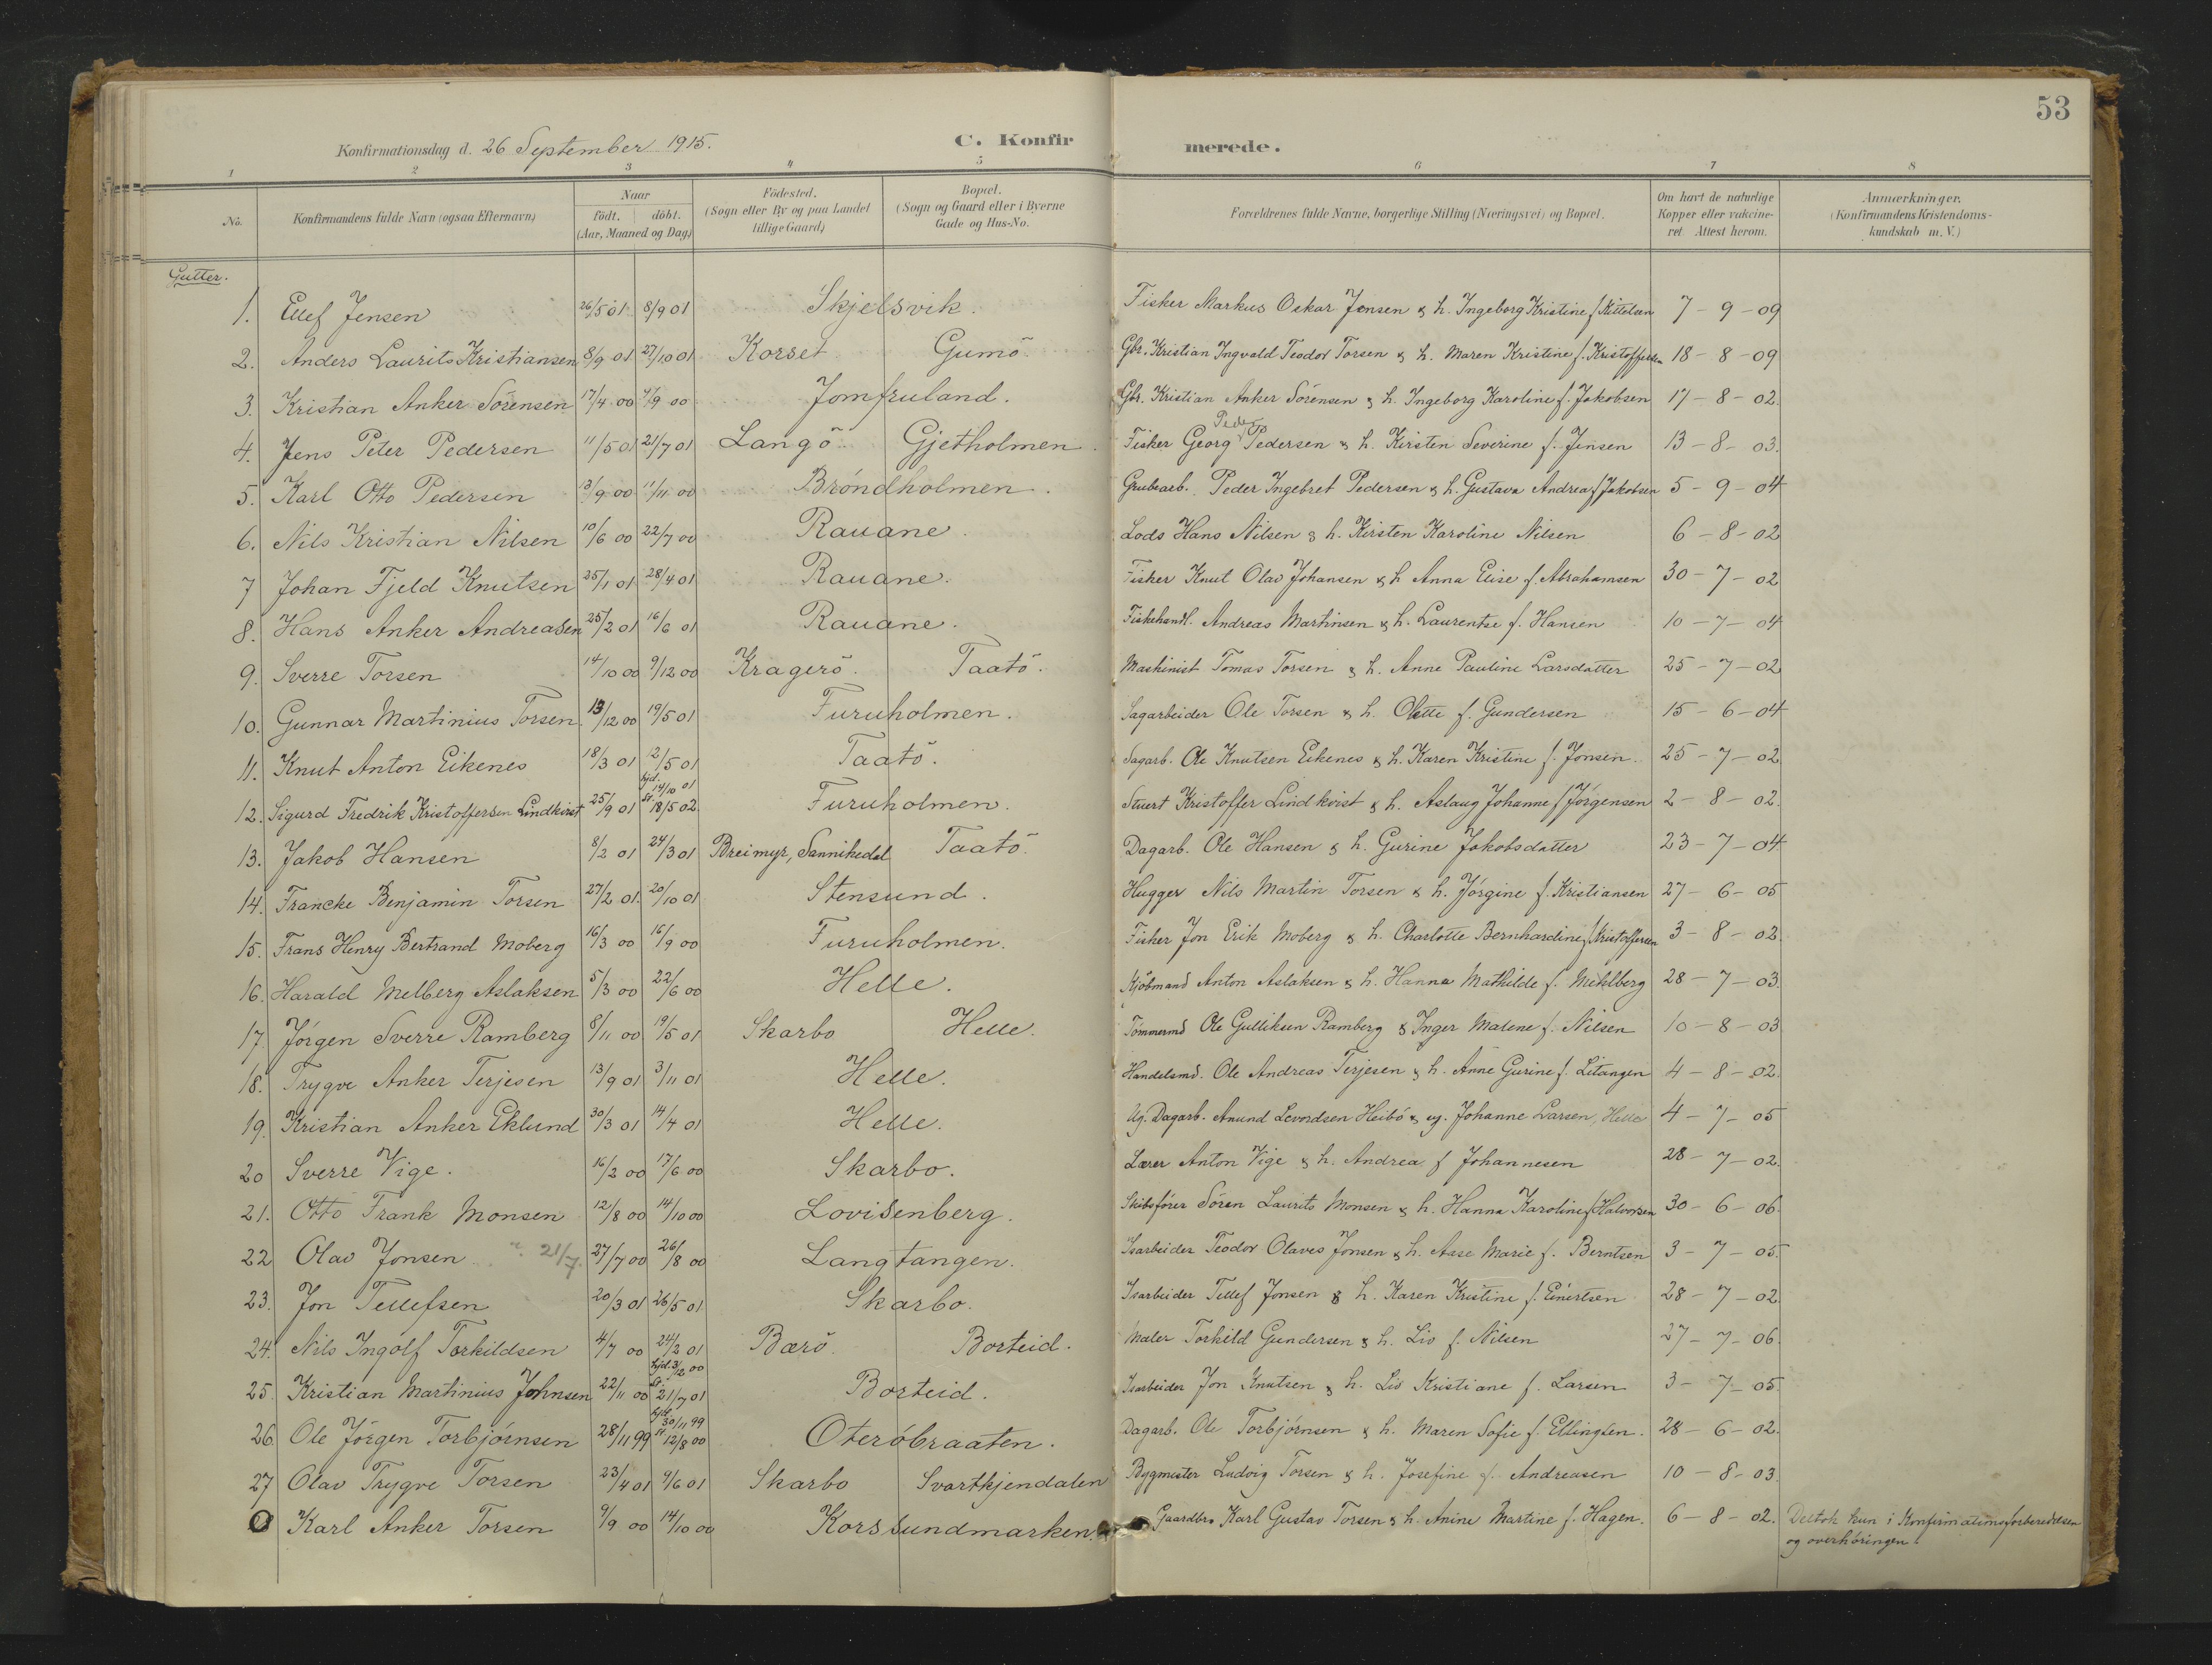 53
Konfirmationsdag d. 26 September 1915.
C. Konfirmerede.
1 2 3 4 5 6 7 8
No.
Konfirmandens fulde Navn (ogsaa Efternavn)
Naar
födt. döbt.
(Aar, Maaned og Dag)
Födested.
(Sogn eller By og paa Landet
tillige Gaard)
Bopæl.
(Sogn og Gaard eller i Byerne
Gade og Hus-No.
Forældrenes fulde Navne, borgerlige Stilling (Næringsvei) og Bopæl.
Om havt de naturlige
Kopper eller vakcine-
ret. Attest herom.
Anmærkninger.
(Konfirmandens Kristendoms-
kundskab m. V.)
Gutter.
1. Ellef Jensen 26/5 01 8/9 01 Skjelsvik. Fisker Markus Oskar Jensen & h. Ingeborg Kristine f. Kittelsen 7 - 9 - 09
2. Anders Laurits Kristiansen 8/9 01 27/10 01 Korset Gumö. Gbr. Kristian Ingvald Teodor Torsen & h. Maren Kristine f. Kristoffersen 18 - 8 - 09
3. Kristian Anker Sörensen 17/4 00 4/9 00 Jomfruland. Gbr. Kristian Anker Sörensen & h. Ingeborg Karoline f. Jakobsen 17 - 8 - 02.
4. Jens Peter Pedersen 11/5 01 21/7 01 Langö. Gjetholmen. Fisker Georg Peder Pedersen & h. Kirsten Severine f. Jensen 13 - 8 - 03.
5. Karl Otto Pedersen 13/9 00 11/11 00 Bröndholmen. Grubearb. Peder Ingebret Pedersen & h. Gustava Andrea f. Jakobsen 5 - 9 - 04
6. Nils Kristian Nilsen 10/6 00 22/7 00 Rauane. Lods Hans Nilsen & h. Kirsten Karoline Nilsen 6 - 8 - 02
7 Johan Fjeld Knutsen 25/1 01 28/4 01 Rauane. Fisker Knut Olav Johansen & h. Anna Elise f. Abrahamsen 30 - 7 - 02
8. Hans Anker Andreasen 25/2 01 16/6 01 Rauane. Fiskehandl. Andreas Martinsen & h. Laurentse f. Hansen 10 - 7 - 04
9. Sverre Torsen 14/10 00 9/12 00 Kragerö. Taatö. Maskinist Tomas Torsen & h. Anne Pauline Larsdatter 25 - 7 - 02
10. Gunnar Martinius Torsen 13/12 00 19/5 01 Furuholmen. Sagarbeider Ole Torsen & h. Olette f. Gundersen 15 - 6 - 04
11. Knut Anton Eikenes 18/3 01 12/5 01 Taatö. Sagarb. Ole Knutsen Eikenes & h. Karen Kristine f. Jonsen. 25 - 7 - 02
12. Sigurd Fredrik Kristoffersen Lindkvist 25/9 01 hjd. 14/10 01 st. 18/5 02 Furuholmen. Stuert Kristoffer Lindkvist & h. Aslaug Johanne f. Jörgensen 2 - 8 - 02.
13. Jakob Hansen 8/2 01 24/3 01 Breimyr, Sannikedal Taatö. Dagarb. Ole Hansen & h. Gurine Jakobsdatter 23 - 7 - 04
14. Francke Benjamin Torsen 27/2 01. 20/10 01 Stensund. Hugger Nils Martin Torsen & h. Jörgine f. Kristiansen 27 - 6 - 05
15. Frans Henry Bertrand Moberg 16/3 00 16/9 00 Furuholmen. Fisker Jon Erik Moberg & h. Charlotte Bernhardine f. Kristoffersen 3 - 8 - 02.
16. Harald Melberg Aslaksen 5/3 00 22/6 00 Helle. Kjöbmand Anton Aslaksen & h. Hanna Mathilde f. Mehlberg 28 - 7 - 03.
17. Jörgen Sverre Ramberg 8/11 00 19/5 01 Skarbo Helle. Tömmermd Ole Gulliksen Ramberg & Inger Malene f. Nilsen 10 - 8 - 03
18. Trygve Anker Terjesen 13/9 01 3/11 01 Helle. Handelsmd. Ole Andreas Terjesen & h. Anne Gurine f. Litangen 4 - 8 - 02.
19. Kristian Anker Eklund 30/3 01 14/4 01 Helle. Ug. Dagarb. Anund Levordsen Heibö & ug. Johanne Larsen, Helle 4 - 7 - 05
20 Sverre Vige. 16/2 00 17/6 00 Skarbo. Lærer Anton Vige & h. Andrea f Johannesen 28 - 7 - 02.
21. Otto Frank Monsen 12/8 00 14/10 00 Lovisenberg. Skibsförer Sören Laurits Monsen & h. Hanna Karoline f. Halvorsen 30 - 6 - 06.
22 Olav Jonsen 21/7. 27/7 00 26/8 00 Langtangen. Isarbeider Teodor Olaves Jonsen & h. Aase Marie f. Berntsen 3 - 7 - 05.
23. Jon Tellefsen 20/3 01 26/5 01 Skarbo. Isarbeider Tellef Jonsen & h. Karen Kristine f. Einertsen 28 - 7 - 02.
24. Nils Ingolf Torkildsen 4/7 00 24/2 01 Bærö. Borteid. Maler Torkild Gundersen & h. Liv f. Nilsen 27 - 7 - 06.
25. Kristian Martinius Johnsen 22/11 00 hjd. 3/12 00 st. 21/7 01 Borteid. Isarbeider Jon Knutsen & h. Liv Kristiane f. Larsen 3 - 7 - 05.
26. Ole Jörgen Torbjörnsen 28/11 99 hjd. 30/11 99 st. 12/8 00 Oteröbraaten. Dagarb. Ole Torbjörnsen & h. Maren Sofie f. Ellingsen. 28 - 6 - 02.
27 Olav Trygve Torsen 23/4 01 9/6 01 Skarbo Svartkjendalen Bygmester Ludvig Torsen & h. Josefine f. Andreasen 10 - 8 - 03.
0 Karl Anker Torsen 9/9 00 14/10 00 Korssundmarken. Gaardbr. Karl Gustav Torsen & h. Anine Martine f. Hagen. 6 - 8 - 02. Deltok kun i Konfirmationsforberedelsen
og overhöringen.